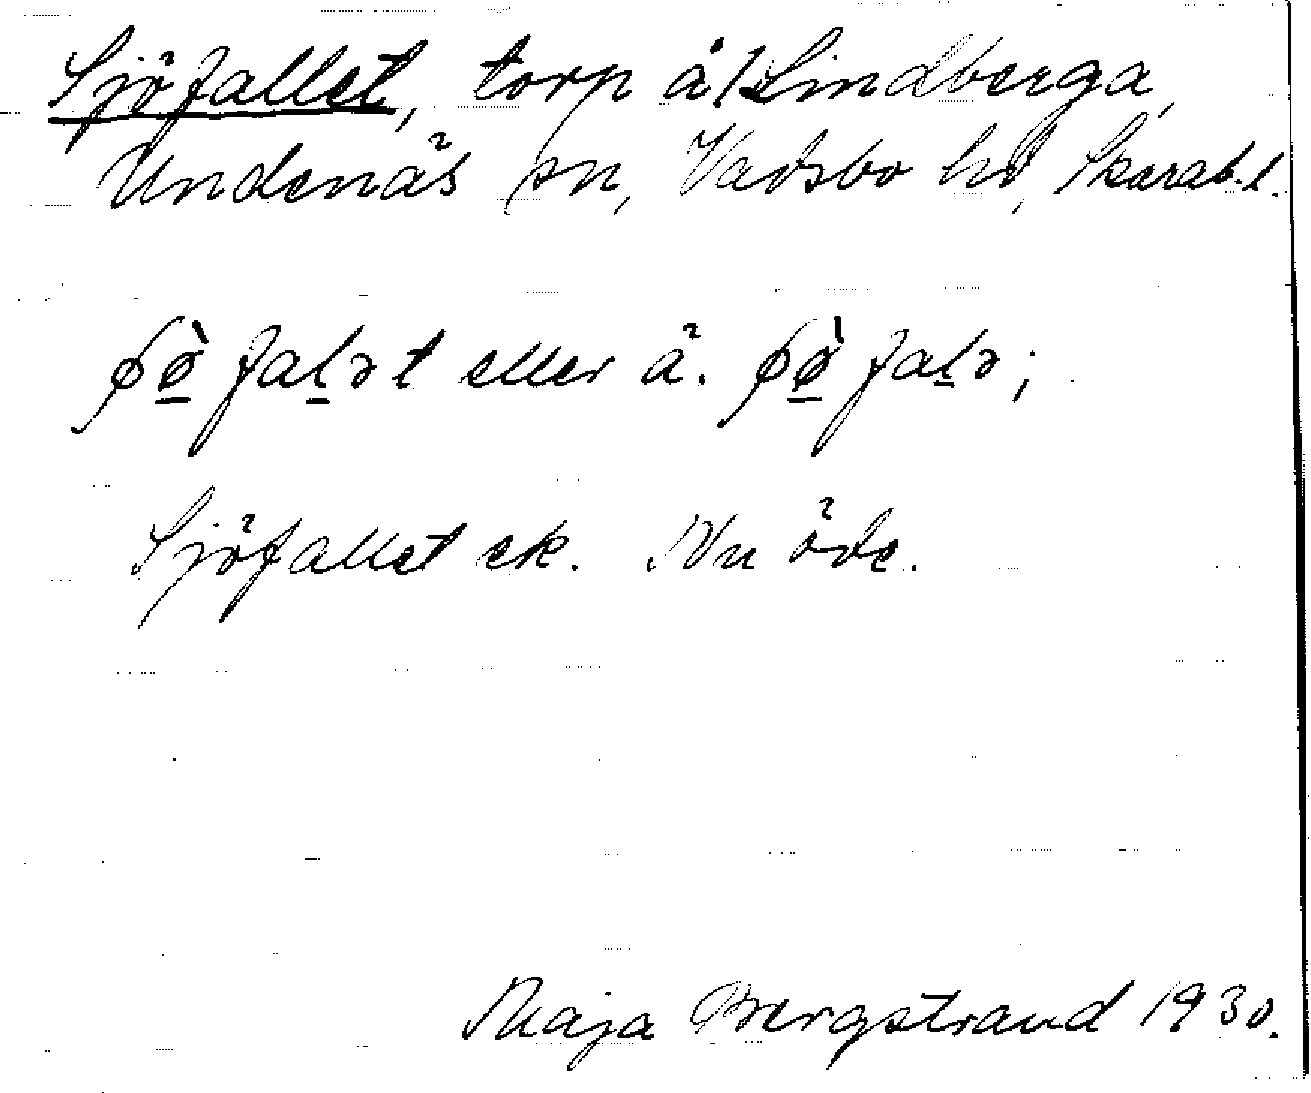 Sjöfallet, torp å Lindberga,
Undenäs sn, Vadsbo hd, Skarab.l.
eller ä.
Sjöfallet ek. Nu öde.
Maja Bergstrand 1930.